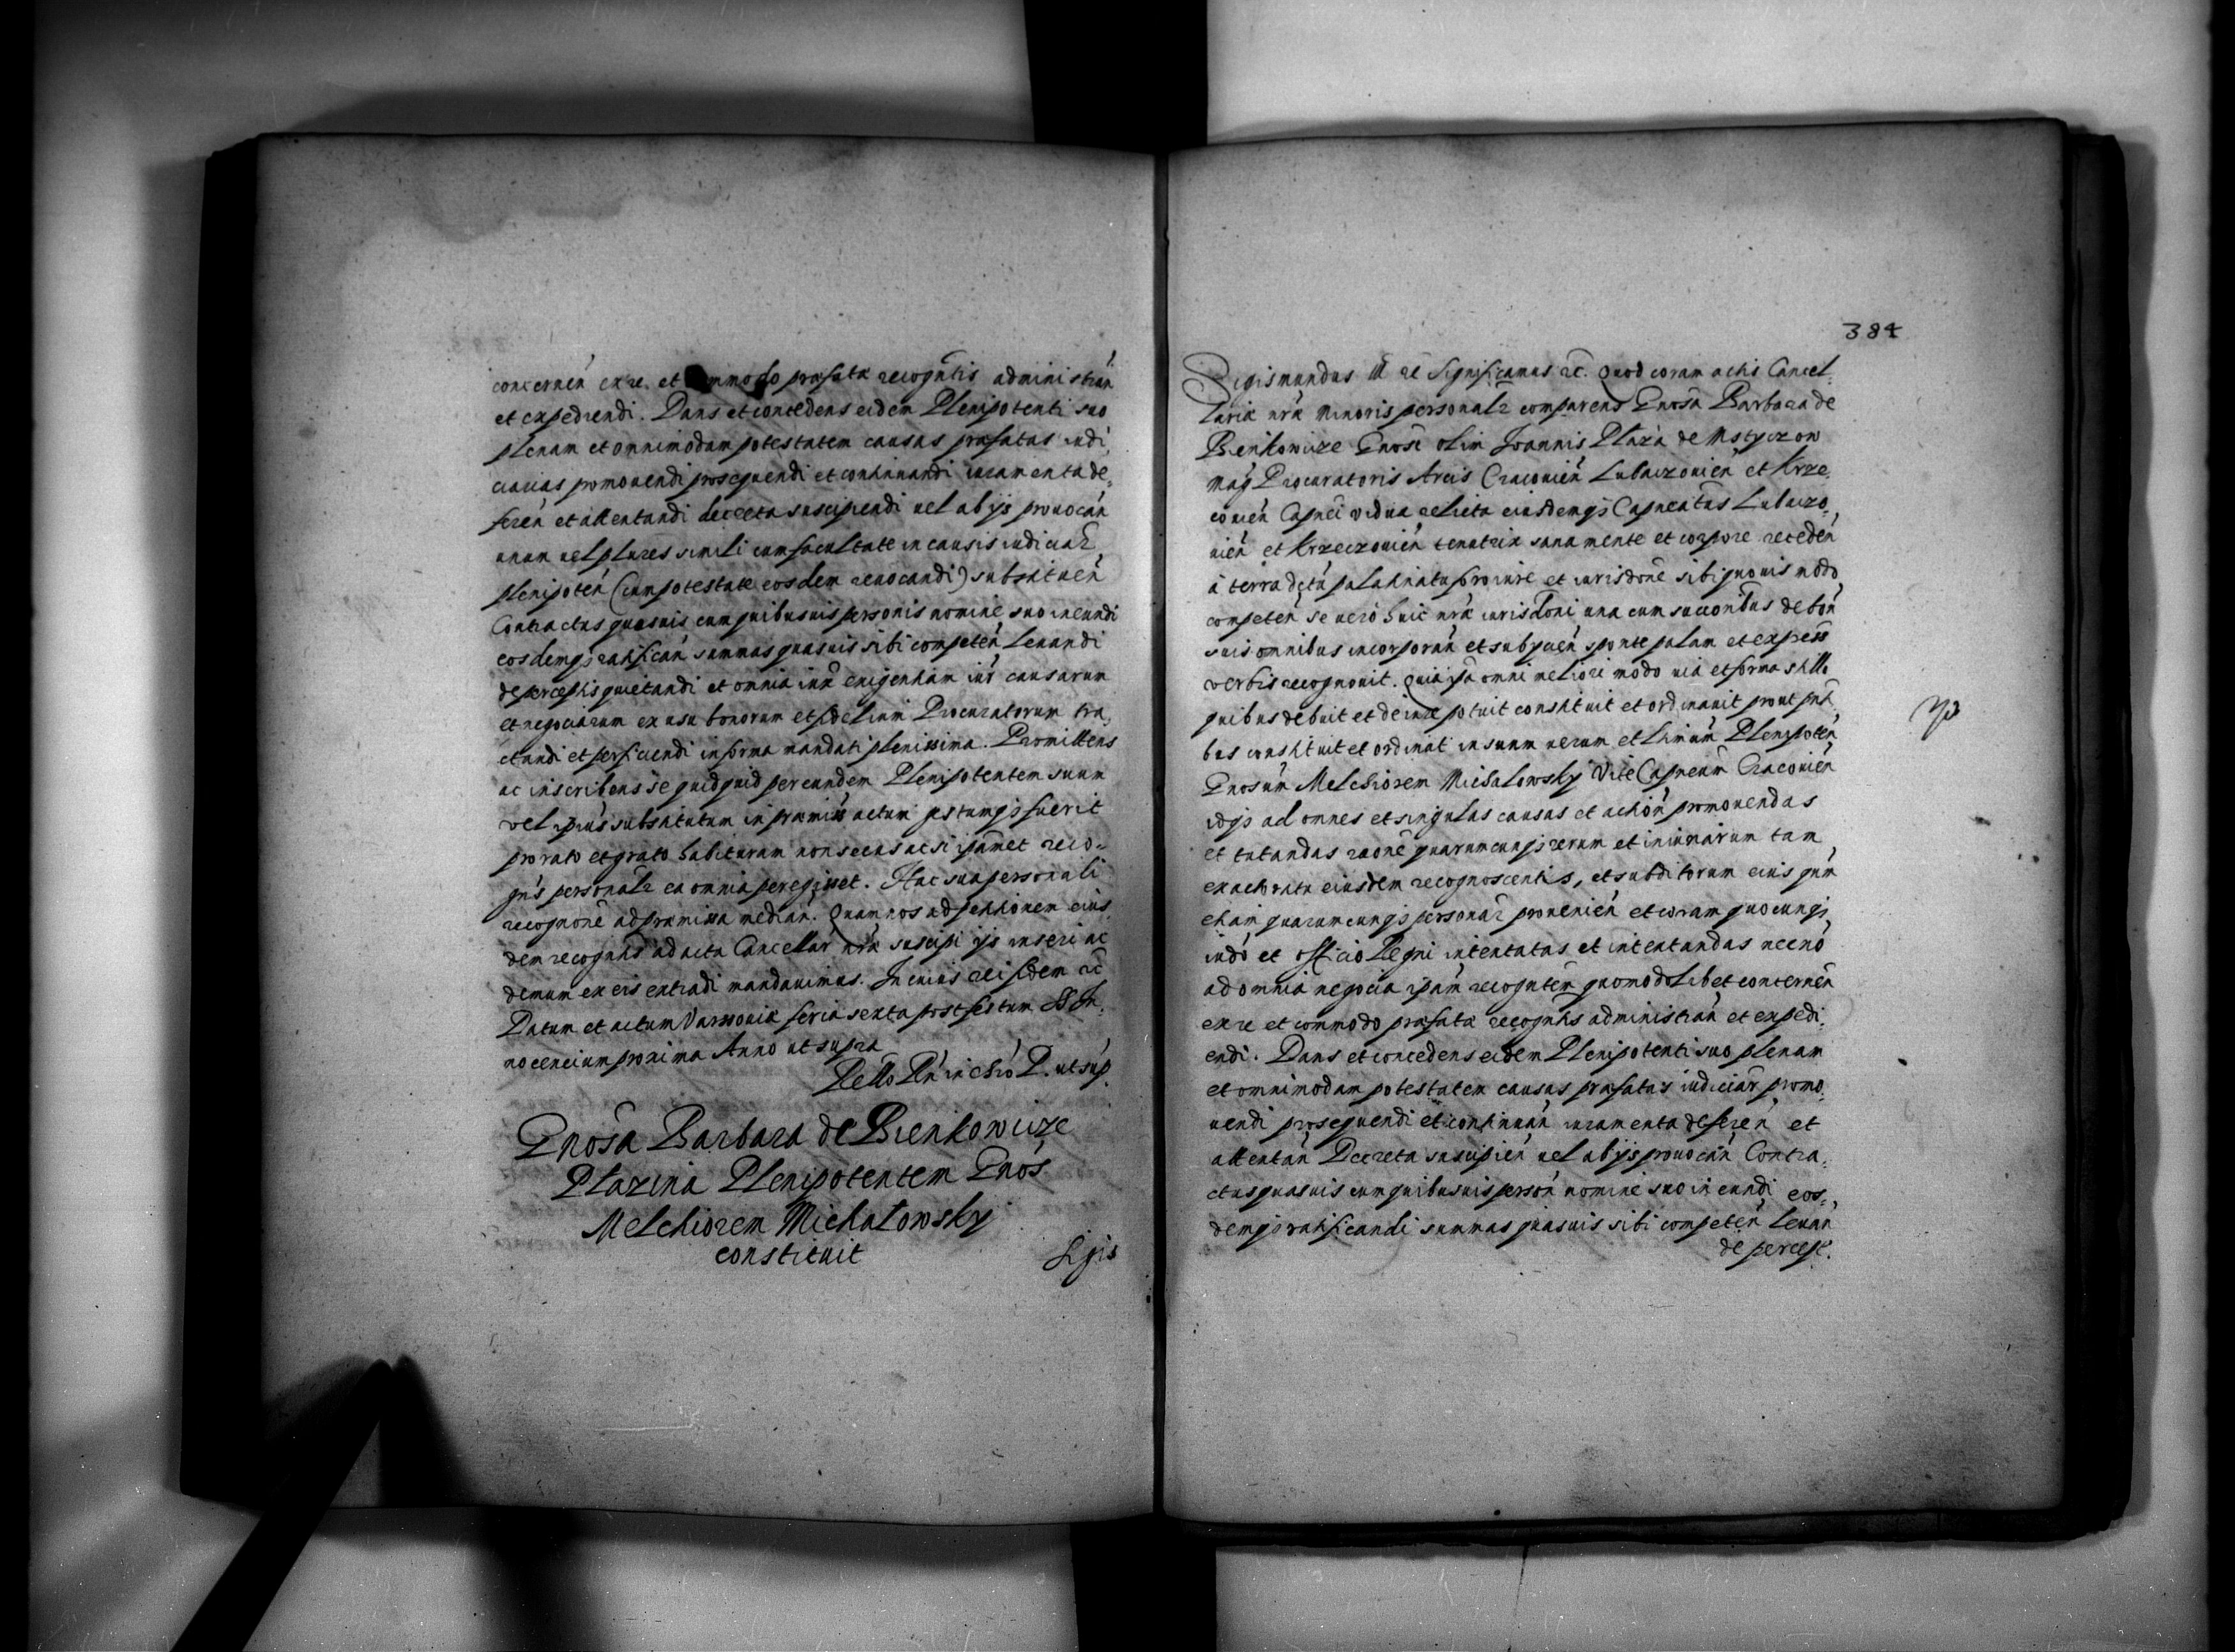 concernen exre et commodo præfatæ recogntis administrán
et expediendi. Dans et concedens eidem Plenipotenti suo
plenam et omnimodam potestatem causas præfatas iudi,
ciarias promouendi prosequendi et continuandi iuramenta de,
feren et attentandi decreta suscipiendi uel ab ijs prouocán
unum uel plures simili cum facultate in causis iudiciar
plenipotén (cum potestate eosdem reuocandi) substituén
Contractus quosuis cum quibusuis personis nomine suo ineundi
eosdemqs ratificán summas quasuis sibi competén Leuandi
de perceptis quietandi et omnia iuxa exigentiam iur causarum
et negociorum ex usu bonorum et fidelium Procuratorum tra,
ctandi et perficiendi in forma mandati plenissima. Promittens
ac inscribens se quidquid per eundem Plenipotentem suum
vel ipsius substitutum in præmiss actum gestumqs fuerit
pro rato et grato habituram non secus ac si ipsamet reco-
gns personalr ea omnia peregisset. Hac sua personali
recognone ad præmissa median. Quam nos ad petitionem eius
dem recogntis ad acta Cancellar nræ suscipi ijs inseri ac
demum ex eis extradi mandauimus. In cuius rei fidem rc
Datum et actum Varsouiæ feria sexta post festum SS In,
nocencium proxima Anno ut supra
Rello Rń in chro P. ut sup.
Gnosa Barbara de Bienkowicze
Płazina Plenipotentem Gnos
Melchiorem Michałowsky
constituit
Sigis
384
Sigismundus III rc Significamus rc. Quod coram actis Cancel-
lariæ nræ Minoris personalr comparens Gnosa Barbara de
Bienkowicze Gnosi olim Joannis Płaza de Mstyczow
Mag Procuratoris Arcis Cracouień Lubaczouień et Krze-
couień Capnei vidua relicta eiusdemqs Capneatus Lubaczo-
uień et Krzeczouień tenutrix sana mente et corpore recedén
a terra dctu palatinatu proinre et iurisdone sibi quouis modo
competen se uero huic nræ iurisdoni una cum succoribus de bon
suis omnibus incorporán et subijcién sponte palam et express
verbis recognouit. Quia ipsa omni meliori modo uia et forma stillo
quibus debuit et de iure potuit constituit et ordinauit prout pnti
bus constituit et ordinat in suum uerum et Ltimum Plenipotén
Gnosum Melchiorem Michalowsky Vice Capneum Cracouień
idqs ad omnes et singulas causas et action promouendas
et tutandas raone quarumcunqs rerum et iniuriarum tam
ex actoratu eiusdem recognoscentis, et subditorum eius qum
etiam quarumcunqs personar prouenién et coram quocunqs
iudo et officio Regni intentatas et intentandas necno
ad omnia negocia ipsam recogntem quomodolibet concernén
exre et commodo præfatæ recogntis administrán et expedi,
endi. Dans et concedens eidem Plenipotenti suo plenam
et omnimodam potestatem causas præfatas iudiciar promo,
uendi prosequendi et continuán iuramenta deferén et
attentán Decreta suscipién uel ab ijs prouocán Contra,
ctus quosuis cum quibusuis person nomine suo ineundi eos,
demqs ratificandi summas quasuis sibi competén leuán
de percept.